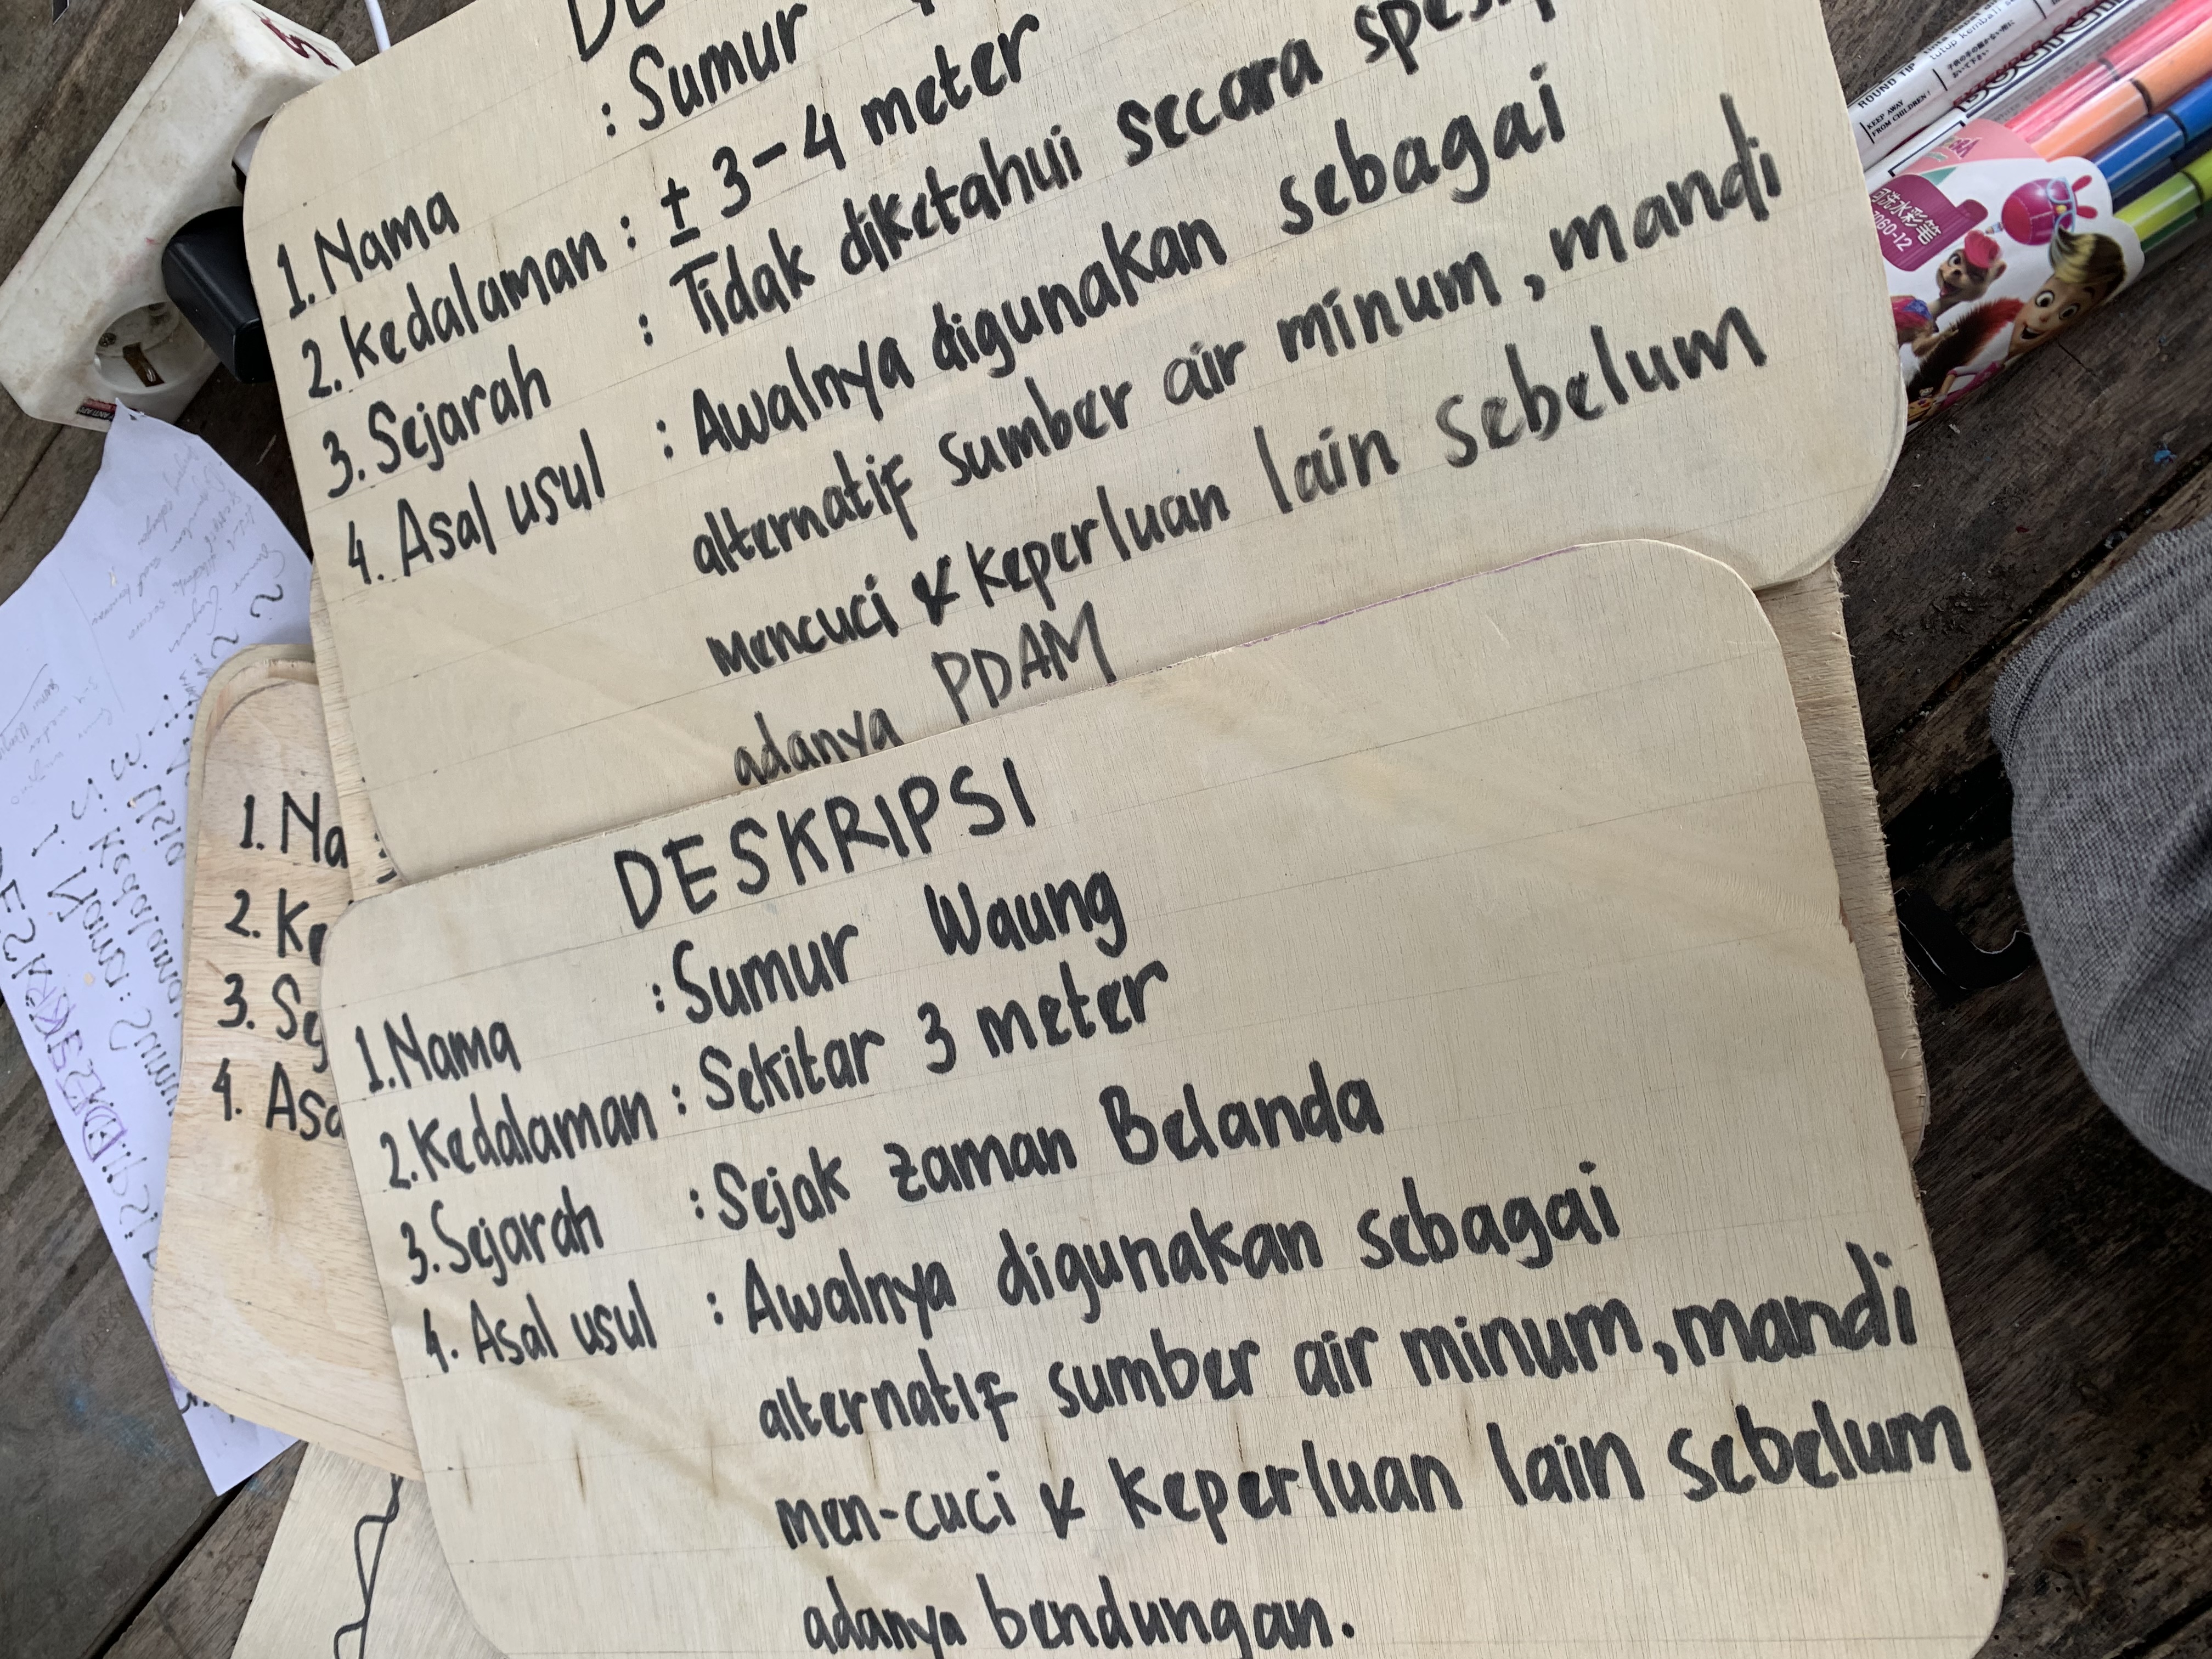 : Sumur
1. Nama
2. Kedalaman : ± 3-4 meter
3. Sejarah : Tidak diketahui secara
4. Asal usul : Awalnya digunakan sebagai
alternatif sumber air minum, mandi
mencuci & keperluan lain sebelum
adanya PDAM
DESKRIPSI
1. Nama : Sumur Waung
2. Kedalaman : Sekitar 3 meter
3. Sejarah : Sejak zaman Belanda
4. Asal usul : Awalnya digunakan sebagai
alternatif sumber air minum, mandi
men-cuci & keperluan lain sebelum
adanya bendungan.
1. Na
2. Ke
3. Se
4. Asa
ROUND TIP
KEEP AWAY
FROM CHILDREN!
可洗水彩笔